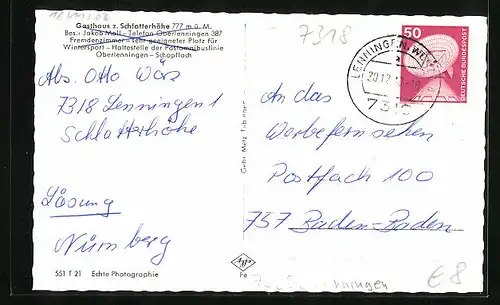 Gasthaus z. Schlatterhöhe 777 m ü. M.
Bes.: Jakob Moll - Telefon Oberlenningen 387
Fremdenzimmer - sehr geeigneter Platz für
Wintersport - Haltestelle der Postomnibuslinie
Oberlenningen - Schopfloch
Abs. Otto Wörz
7318 Lenningen 1
Schlatterhöhe
Lösung
Nürnberg
551 T 21 Echte Photographie
Gebr. Metz Tübingen
7318
LENNINGEN, WÜRTT
a
20.12.
7318
50
DEUTSCHE BUNDESPOST
An das
Werbefernsehen
Postfach 100
757 Baden-Baden
Fe
€ 8